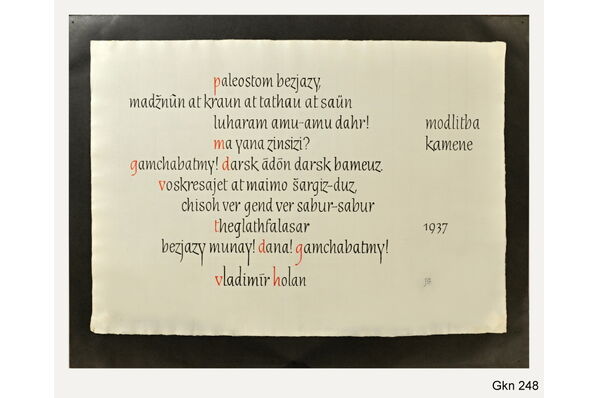 paleostom bezjazy,
madžnûn at kraun at tathau at saün
luharam amu-amu dahr!
ma yana zinsizi?
gamchabatmy! darsk ādōn darsk bameuz.
voskresajet at maimo šargiz-duz,
chisoh ver gend ver sabur-sabur
theglathfalasar
bezjazy munay! dana! gamchabatmy!
vladimír holan
modlitba
kamene
1937
Gkn 248